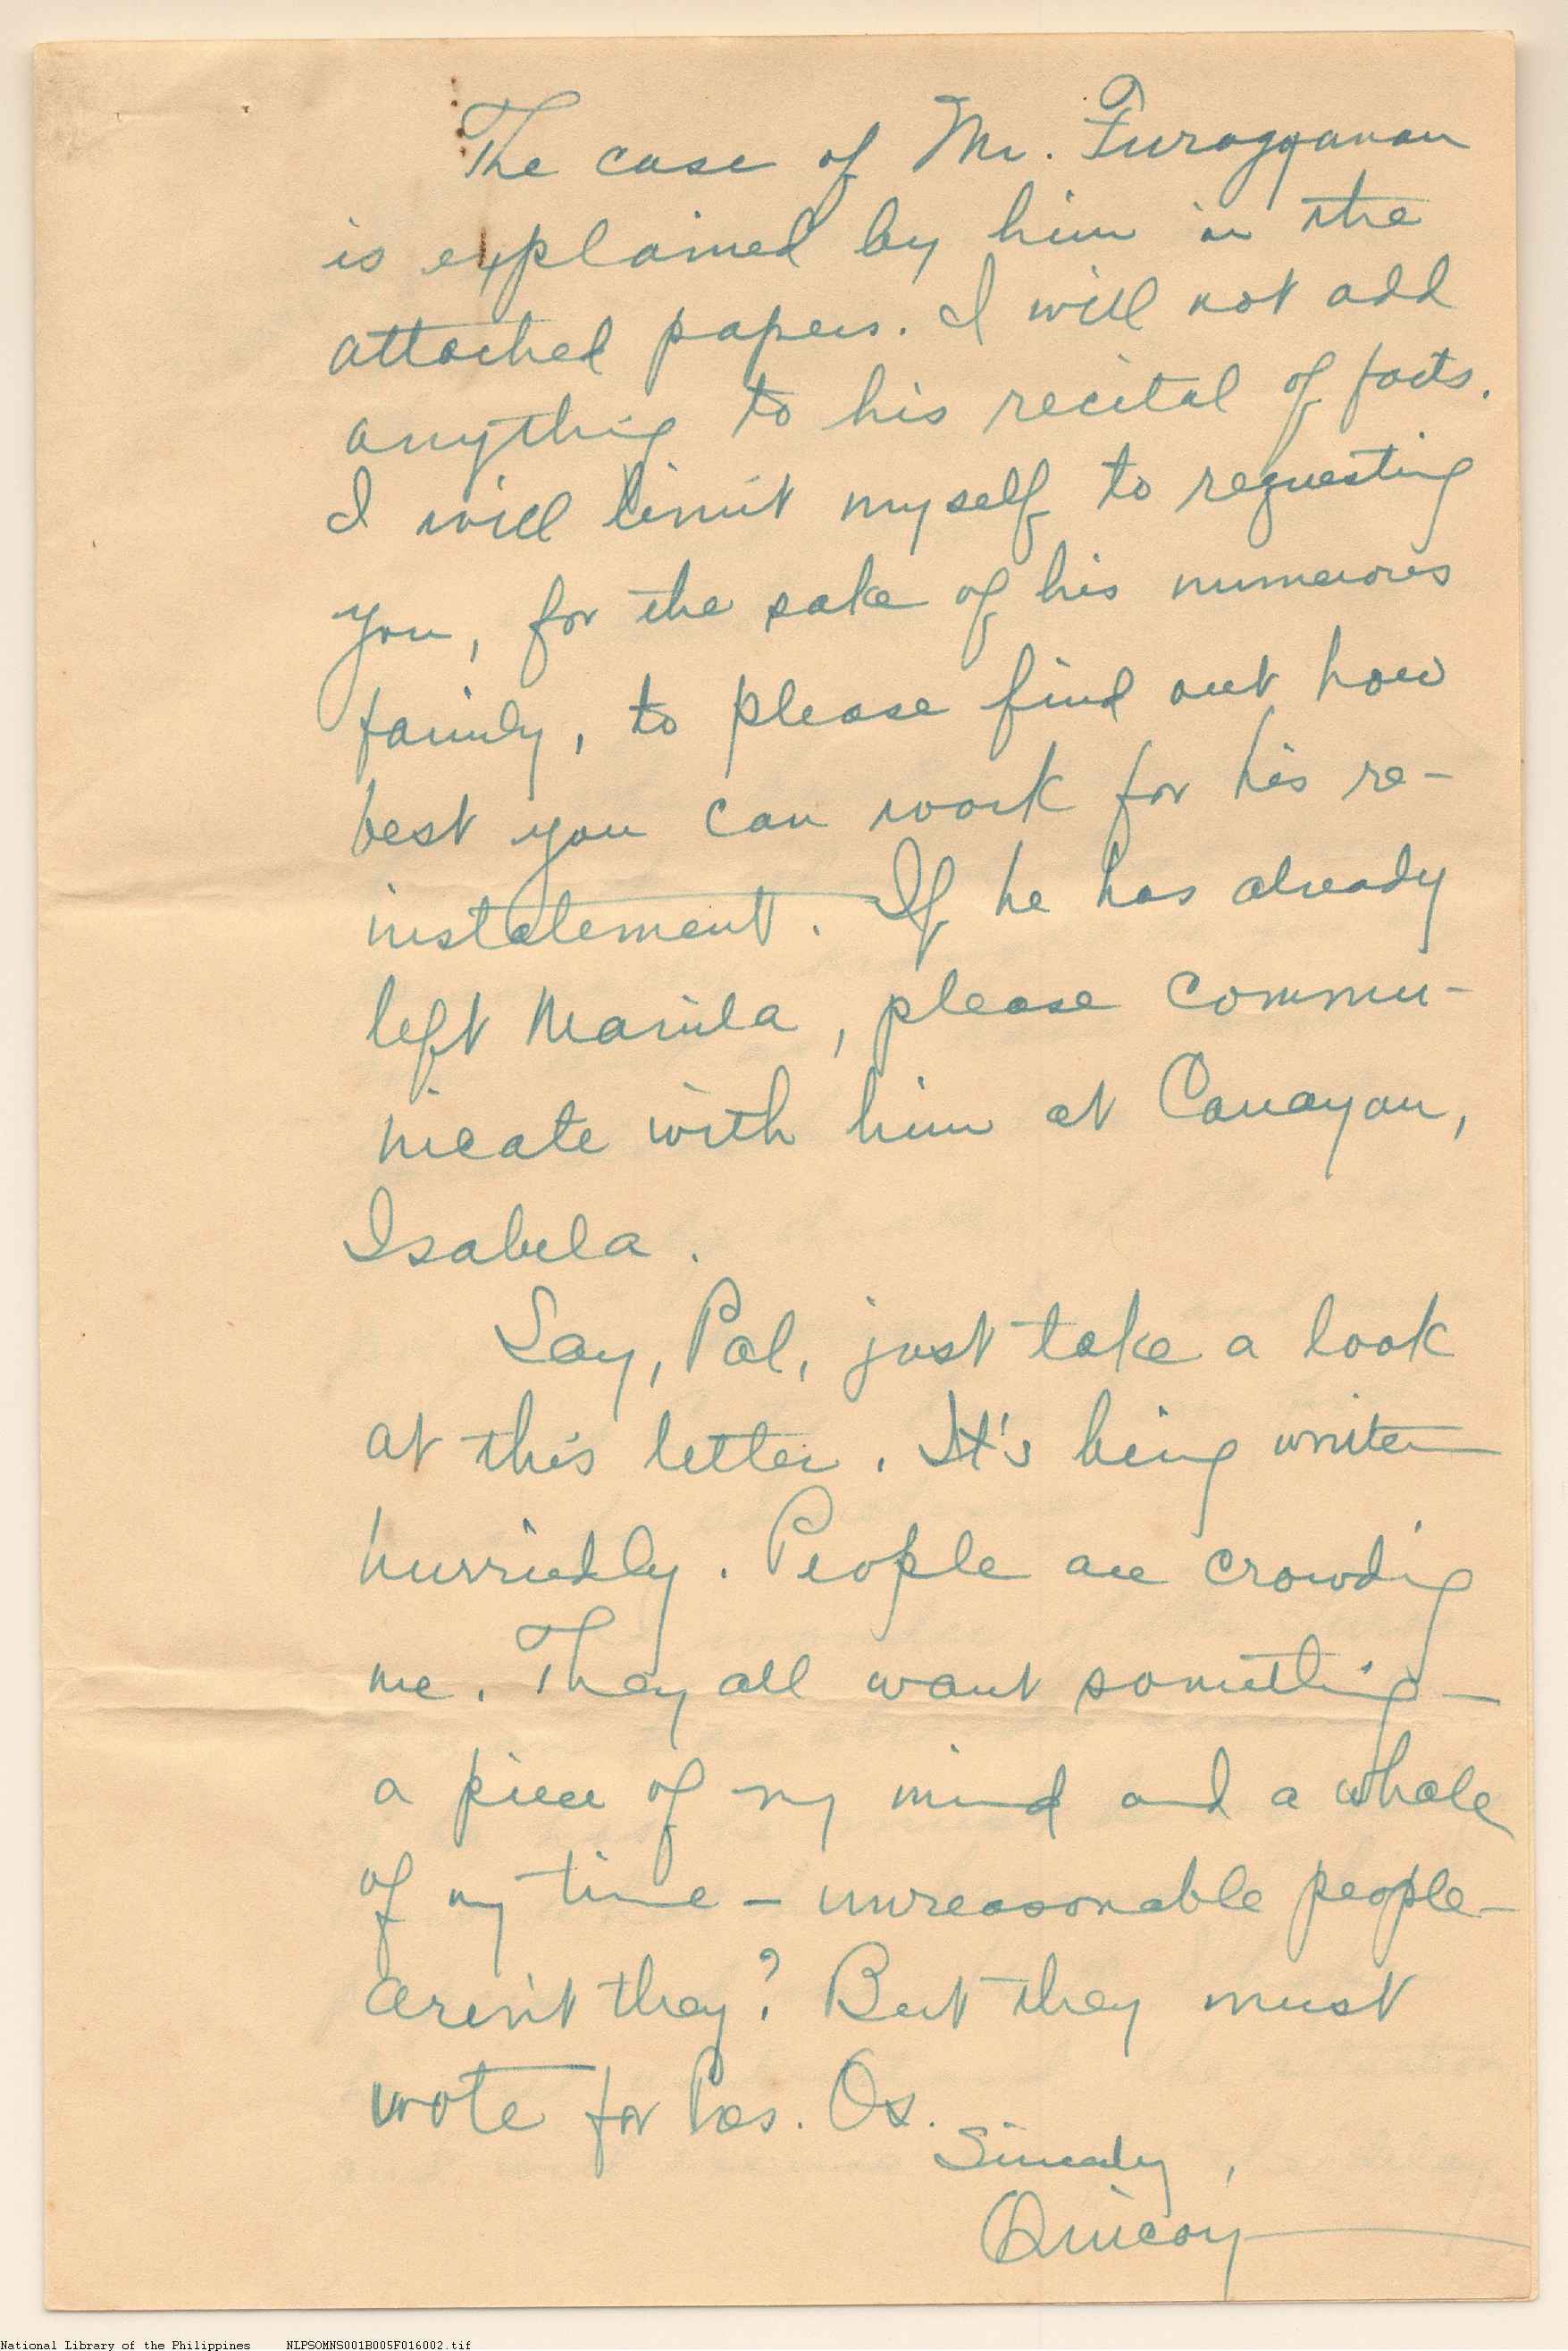 The case of Mr. Furagganan
is explained by him in the
attached papers. I will not add
anything to his recital of facts.
I will limit myself to requesting
you, for the sake of his numerous
family, to please find out how
best you can work for his re-
instatement. If he has already
left Manila, please commu-
nicate with him at Cauayan,
Isabela.
Say, Pal, just take a look
at this letter. It's being writen
hurriedly. People are crowding
me. They all want something —
a piece of my mind and a whole
of my time — unreasonable people —
aren't they? But they must
vote for Pres. Os.
Sincerely,
Quicoy
National Library of the Philippines NLPSOMNS001B005F016002.tif